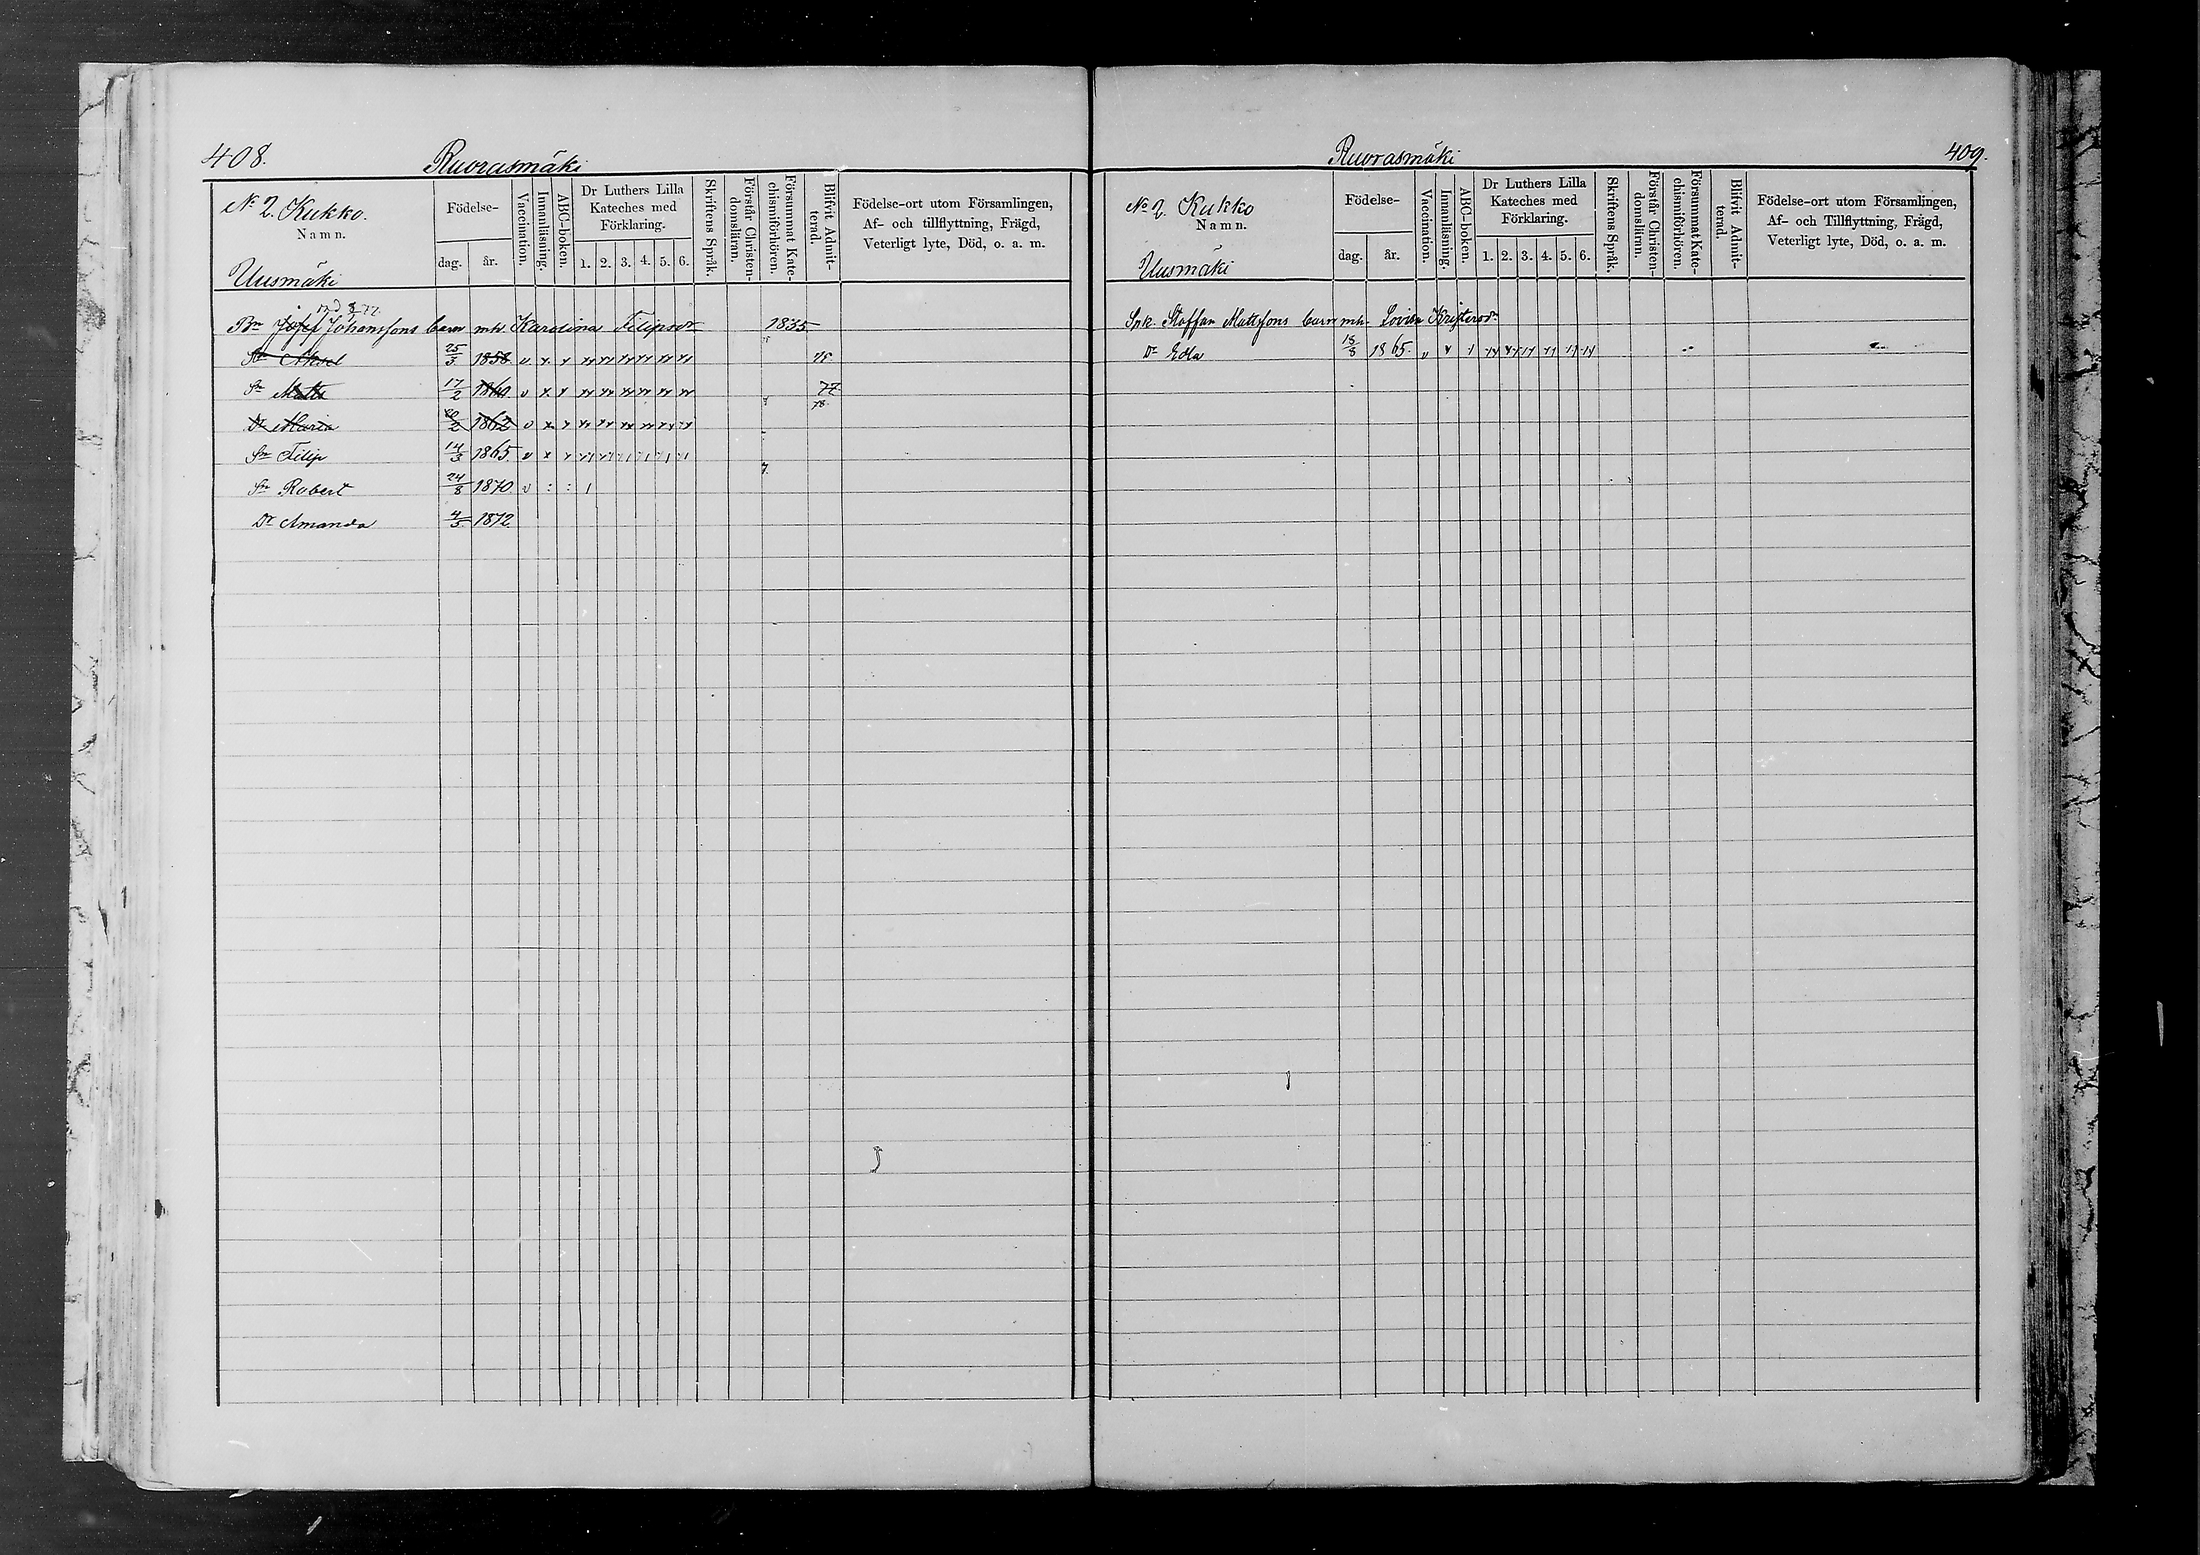 408.
Ruorasmäki
No 2. Kukko.
Namn.
Uusmäki
Födelse-
dag.
år.
Vaccination.
Innanläsning.
ABC-boken.
Dr Luthers Lilla
Kateches med
Förklaring.
1. 2. 3. 4. 5. 6.
Skriftens Språk.
Förstår Christen-
domsläran.
Försummat Kate-
chismiförhören.
Blifvit Admit-
terad.
Födelse-ort utom Församlingen,
Af- och tillflyttning, Frägd,
Veterligt lyte, Död, o. a. m.
Bn Josef Johanssons barn mh. Karolina Filipsdr 1835
Sn Aksel 25/3 1858 v x x
Sn Matts 17/2 1860 v x x 77
78.
Dr Maria 20/2 1862 v x x
Sn Filip 14/3 1865 v x x
Sn Robert 24/8 1870 v : : 1
Dr Amanda 4/3 1872
Ruorasmäki
409.
No 2. Kukko
Namn.
Uusmäki
Födelse-
dag.
år.
Vaccination.
Innanläsning.
ABC-boken.
Dr Luthers Lilla
Kateches med
Förklaring.
1. 2. 3. 4. 5. 6.
Skriftens Språk.
Förstår Christen-
domsläran.
Försummat Kate-
chismiförhören.
Blifvit Admit-
terad.
Födelse-ort utom Församlingen,
Af- och Tillflyttning, Frägd,
Veterligt lyte, Död, o. a. m.
Staffan Mattssons barn mh. Lovisa Kristersdr
Dr Edla 18/8 1865. v x